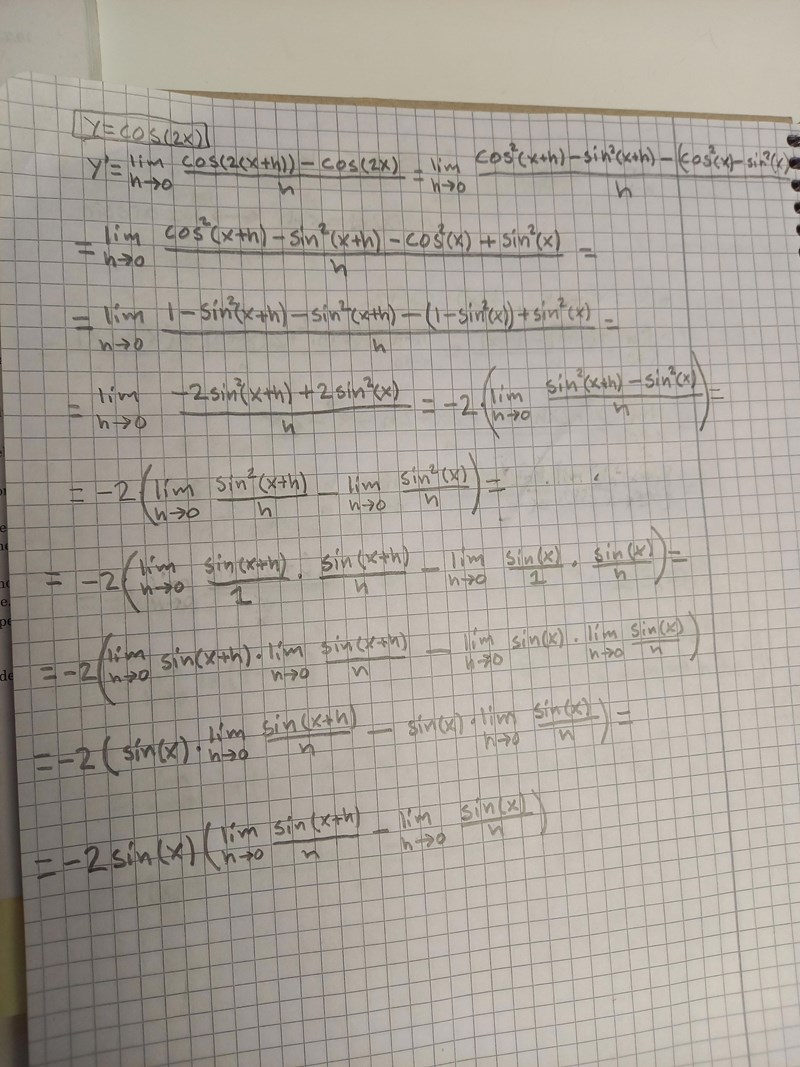 y=cos(2x)
y'=lim h→0 (cos(2(x+h))-cos(2x))/h = lim h→0 (cos²(x+h)-sin²(x+h)-(cos²(x)-sin²(x))/h
= lim h→0 (cos²(x+h)-sin²(x+h)-cos²(x)+sin²(x))/h =
= lim h→0 (1-sin²(x+h)-sin²(x+h)-(1-sin²(x))+sin²(x))/h =
= lim h→0 (-2sin²(x+h)+2sin²(x))/h = -2·(lim h→0 (sin²(x+h)-sin²(x))/h) =
= -2(lim h→0 sin²(x+h)/h - lim h→0 sin²(x)/h) =
= -2(lim h→0 sin(x+h)/1 · sin(x+h)/h - lim h→0 sin(x)/1 · sin(x)/h) =
= -2(lim h→0 sin(x+h)·lim h→0 sin(x+h)/h - lim h→0 sin(x)·lim h→0 sin(x)/h)
= -2(sin(x)·lim h→0 sin(x+h)/h - sin(x)·lim h→0 sin(x)/h) =
= -2sin(x)(lim h→0 sin(x+h)/h - lim h→0 sin(x)/h)